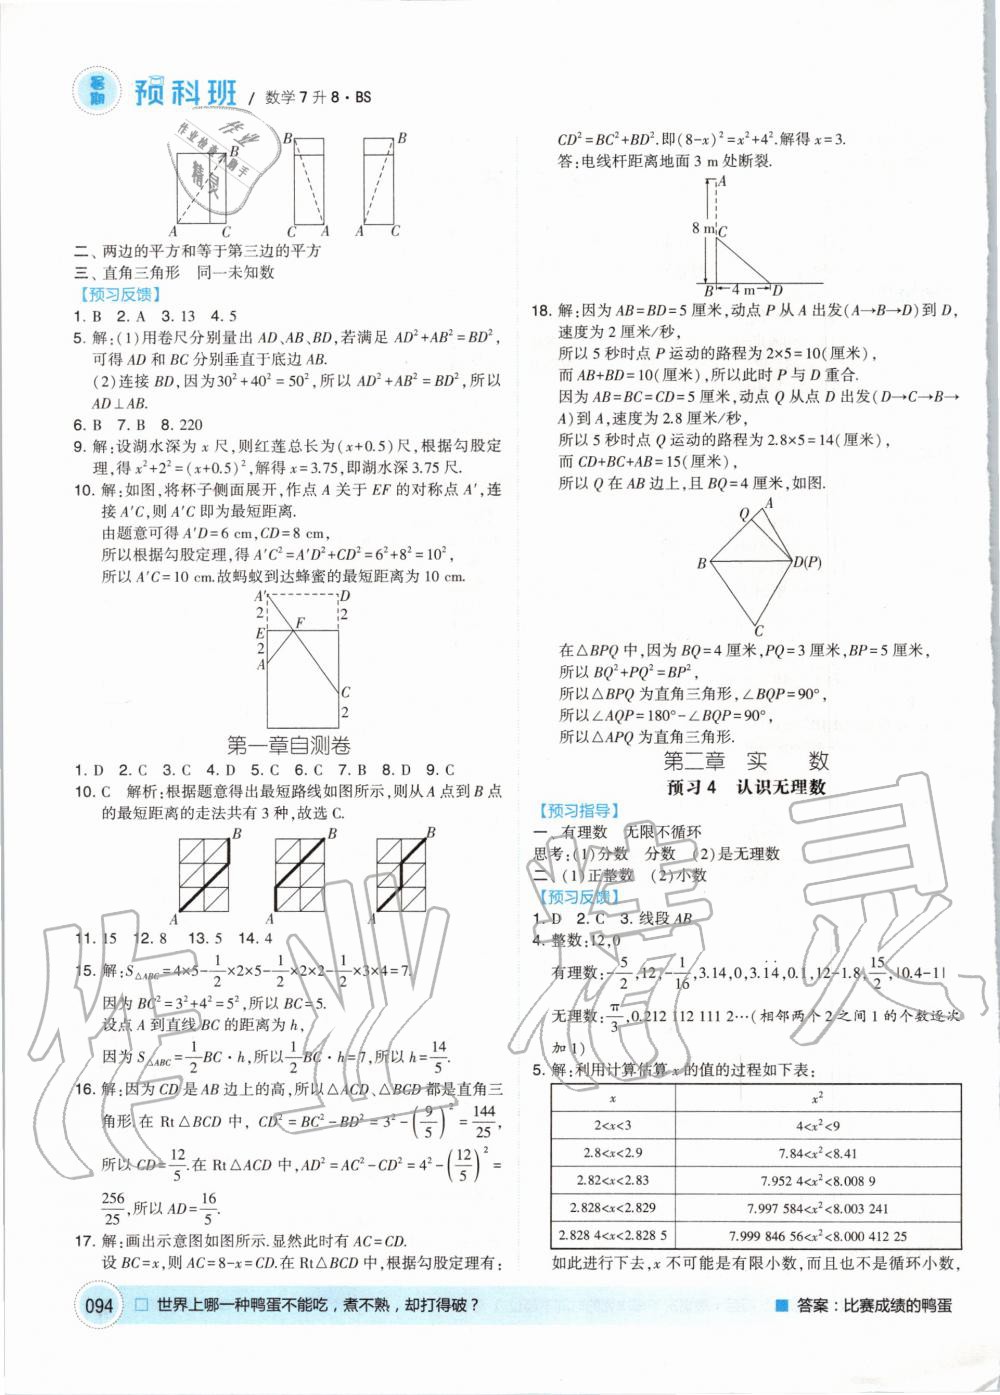 暑期 预科班 / 数学7升8·BS
B B B
A C C A A C
二、两边的平方和等于第三边的平方
三、直角三角形 同一未知数
【预习反馈】
1. B 2. A 3. 13 4. 5
5. 解:(1)用卷尺分别量出 AD、AB、BD,若满足 AD²+AB²=BD²,
可得 AD 和 BC 分别垂直于底边 AB.
(2)连接 BD,因为30²+40²=50²,所以 AD²+AB²=BD²,所以
AD⊥AB.
6. B 7. B 8. 220
9. 解:设湖水深为 x 尺,则红莲总长为(x+0.5)尺,根据勾股定
理,得 x²+2²=(x+0.5)²,解得 x=3.75,即湖水深 3.75 尺.
10. 解:如图,将杯子侧面展开,作点 A 关于 EF 的对称点 A′,连
接 A′C,则 A′C 即为最短距离.
由题意可得 A′D=6 cm,CD=8 cm,
所以根据勾股定理,得 A′C²=A′D²+CD²=6²+8²=10²,
所以 A′C=10 cm.故蚂蚁到达蜂蜜的最短距离为 10 cm.
A′ D
2 2
E F
2
A
C
2
第一章自测卷
1. D 2. C 3. C 4. D 5. C 6. C 7. B 8. D 9. C
10. C 解析:根据题意得出最短路线如图所示,则从 A 点到 B 点
的最短距离的走法共有 3 种,故选 C.
B B B
A A A
11. 15 12. 8 13. 5 14. 4
15. 解:S△ABC=4×5-1/2×2×5-1/2×2×2-1/2×3×4=7.
因为 BC²=3²+4²=5²,所以 BC=5.
设点 A 到直线 BC 的距离为 h,
因为 S△ABC=1/2BC·h,所以1/2BC·h=7,所以 h=14/5.
16. 解:因为 CD 是 AB 边上的高,所以△ACD、△BCD 都是直角三
角形.在 Rt△BCD 中, CD²=BC²-BD²=3²-(9/5)²=144/25,
所以 CD=12/5.在 Rt△ACD 中,AD²=AC²-CD²=4²-(12/5)²=
256/25,所以 AD=16/5.
17. 解:画出示意图如图所示.显然此时有 AC=CD.
设 BC=x,则 AC=8-x=CD.在 Rt△BCD 中,根据勾股定理有:
CD²=BC²+BD².即(8-x)²=x²+4².解得 x=3.
答:电线杆距离地面 3 m 处断裂.
A
8 m C
B 4 m D
18. 解:因为 AB=BD=5 厘米,动点 P 从 A 出发(A→B→D)到 D,
速度为 2 厘米/秒,
所以 5 秒时点 P 运动的路程为 2×5=10(厘米),
而 AB+BD=10(厘米),所以此时 P 与 D 重合.
因为 AB=BC=CD=5 厘米,动点 Q 从点 D 出发(D→C→B→
A)到 A,速度为 2.8 厘米/秒,
所以 5 秒时点 Q 运动的路程为 2.8×5=14(厘米),
而 CD+BC+AB=15(厘米),
所以 Q 在 AB 边上,且 BQ=4 厘米,如图.
A
Q
B D(P)
C
在△BPQ 中,因为 BQ=4 厘米,PQ=3 厘米,BP=5 厘米,
所以 BQ²+PQ²=BP²,
所以△BPQ 为直角三角形,∠BQP=90°,
所以∠AQP=180°-∠BQP=90°,
所以△APQ 为直角三角形.
第二章 实 数
预习 4 认识无理数
【预习指导】
一、有理数 无限不循环
思考:(1)分数 分数 (2)是无理数
二、(1)正整数 (2)小数
【预习反馈】
1. D 2. C 3. 线段 AB
4. 整数:12,0
有理数:-5/2,12,-1/16,3.14,0,3.14,0.1,12-1.8,15/2,|0.4-1|
无理数:π/3,0.212 112 111 2…(相邻两个 2 之间 1 的个数逐次
加 1)
5. 解:利用计算估算 x 的值的过程如下表:
x x²
2<x<3 4<x²<9
2.8<x<2.9 7.84<x²<8.41
2.82<x<2.83 7.952 4<x²<8.008 9
2.828<x<2.829 7.997 584<x²<8.003 241
2.828 4<x<2.828 5 7.999 846 56<x²<8.000 412 25
如此进行下去,x 不可能是有限小数,而且也不是循环小数,
094 □ 世界上哪一种鸭蛋不能吃，煮不熟，却打得破？ ■ 答案：比赛成绩的鸭蛋
作业精灵
作业
作业检查小助手
精灵